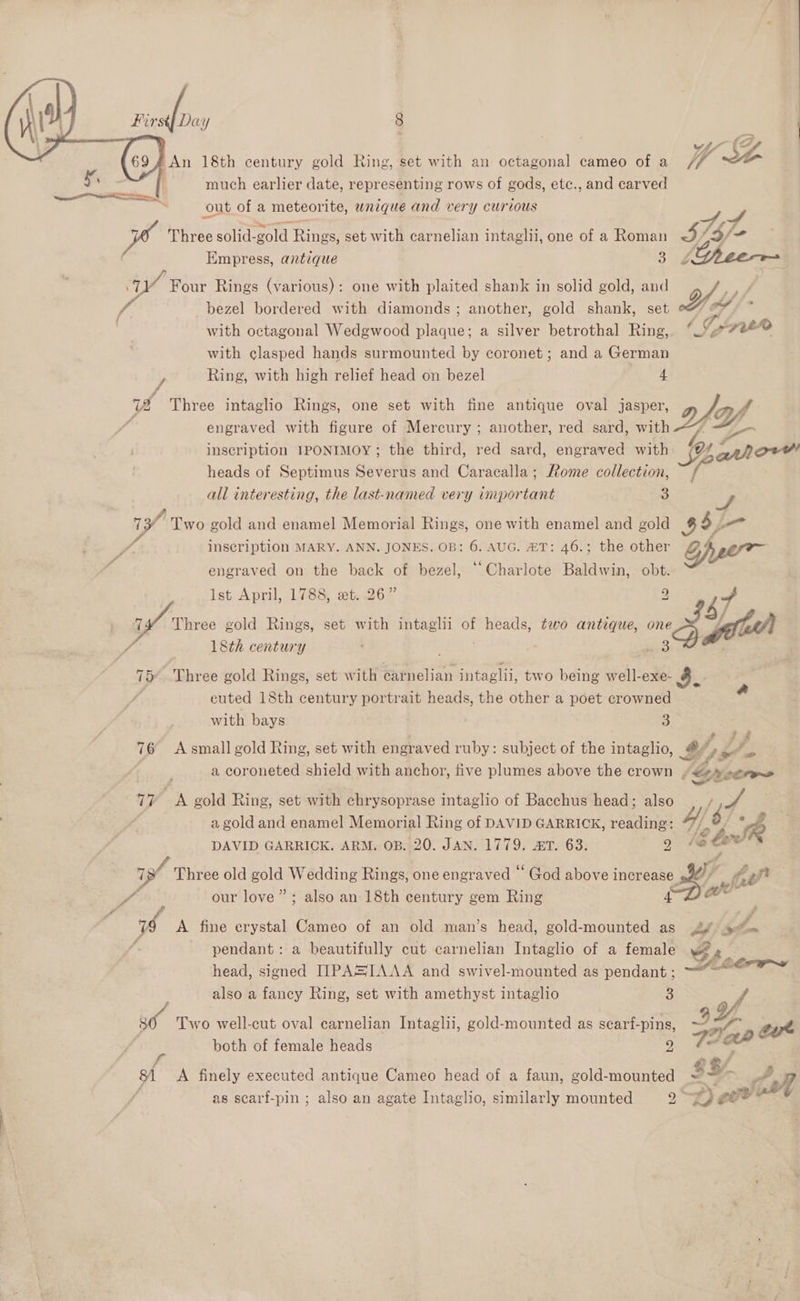 First Day 8
69 An 18th century gold Ring, set with an octagonal cameo of a
much earlier date, representing rows of gods, etc., and carved
out of a meteorite, unique and very curious
70 Three solid-gold Rings, set with carnelian intaglii, one of a Roman
Empress, antique 3
71 Four Rings (various): one with plaited shank in solid gold, and
bezel bordered with diamonds; another, gold shank, set
with octagonal Wedgwood plaque; a silver betrothal Ring,
with clasped hands surmounted by coronet; and a German
Ring, with high relief head on bezel 4
72 Three intaglio Rings, one set with fine antique oval jasper,
engraved with figure of Mercury; another, red sard, with
inscription IPONIMOY; the third, red sard, engraved with
heads of Septimus Severus and Caracalla; Rome collection,
all interesting, the last-named very important 3
73 Two gold and enamel Memorial Rings, one with enamel and gold
inscription MARY. ANN. JONES. OB: 6. AUG. ÆT: 46.; the other
engraved on the back of bezel, “Charlote Baldwin, obt.
1st April, 1788, æt. 26” 2
74 Three gold Rings, set with intaglii of heads, two antique, one
18th century 3
75 Three gold Rings, set with carnelian intaglii, two being well-exe-
cuted 18th century portrait heads, the other a poet crowned
with bays 3
76 A small gold Ring, set with engraved ruby: subject of the intaglio,
a coroneted shield with anchor, five plumes above the crown
77 A gold Ring, set with chrysoprase intaglio of Bacchus head; also
a gold and enamel Memorial Ring of DAVID GARRICK, reading:
DAVID GARRICK. ARM. OB. 20. JAN. 1779. ÆT. 63. 2
78 Three old gold Wedding Rings, one engraved “God above increase
our love”; also an 18th century gem Ring 4
79 A fine crystal Cameo of an old man's head, gold-mounted as
pendant: a beautifully cut carnelian Intaglio of a female
head, signed ΠΡΑΞΙΛΑΑ and swivel-mounted as pendant;
also a fancy Ring, set with amethyst intaglio 3
80 Two well-cut oval carnelian Intaglii, gold-mounted as scarf-pins,
both of female heads 2
81 A finely executed antique Cameo head of a faun, gold-mounted
as scarf-pin; also an agate Intaglio, similarly mounted 2